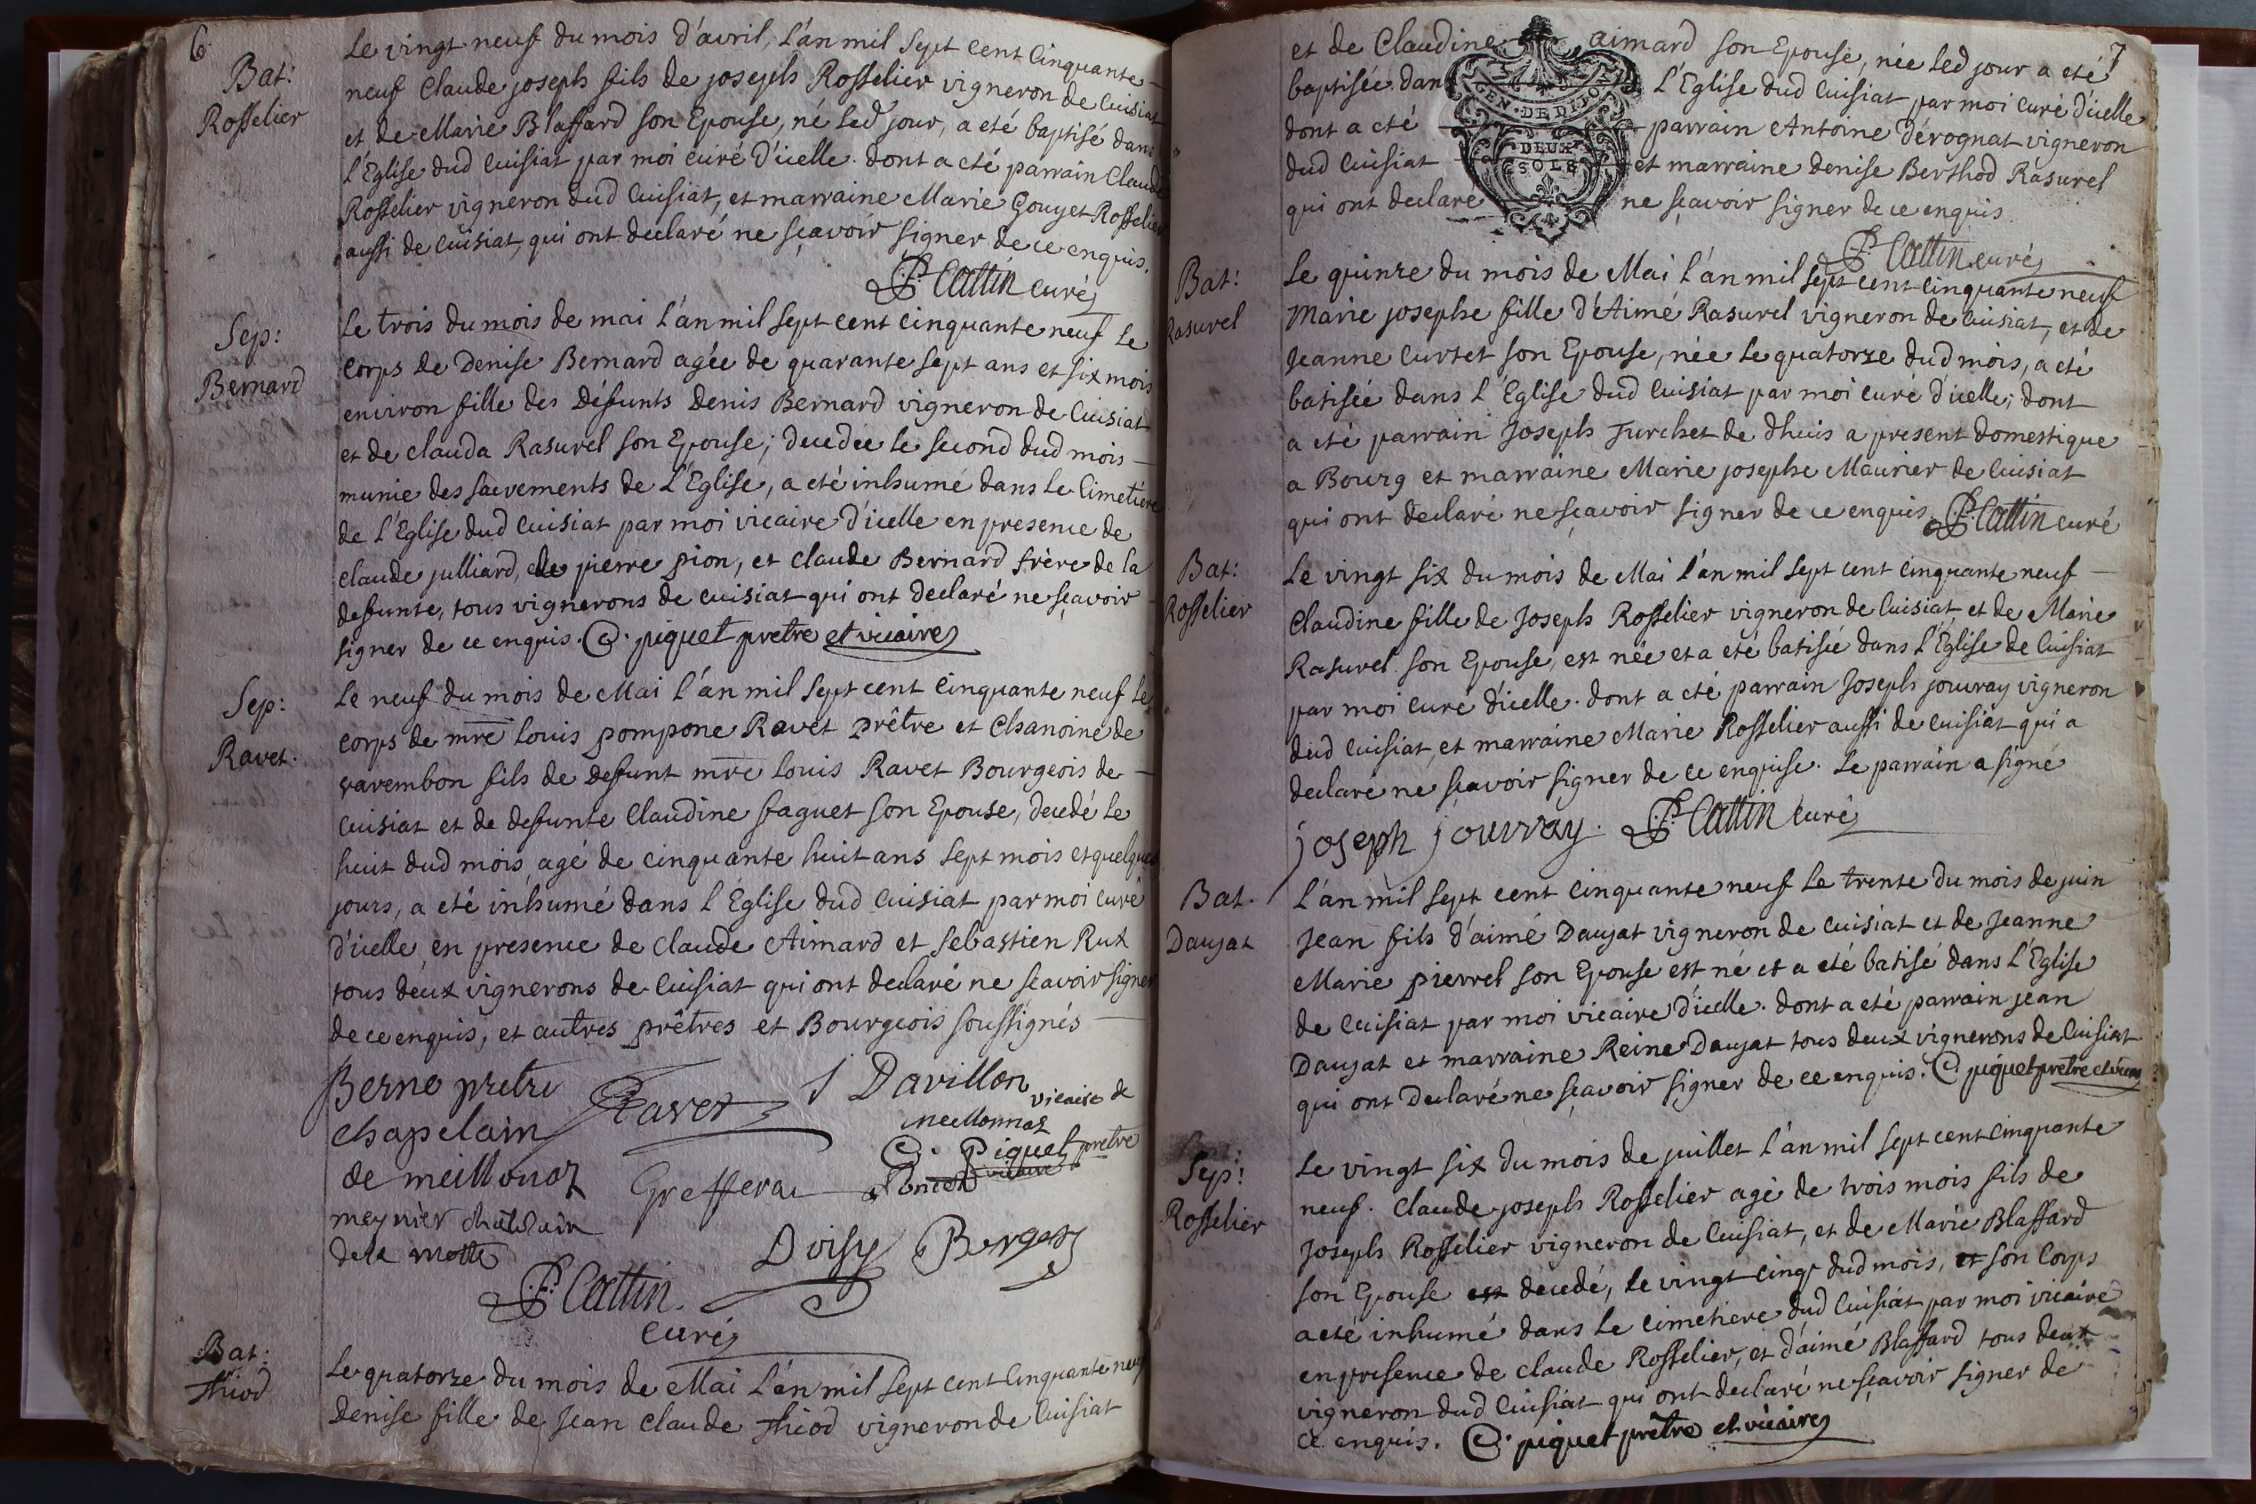 6
Bat:
Rosselier
Le vingt neuf du mois d'avril, L'an mil sept cent cinquante
neuf Claude joseph fils de joseph Rosselier vigneron de Cuisiat
et de Marie Blaffard son Epouse, né led jour, a eté baptisé dans
l'Eglise dud Cuisiat par moi curé d'icelle. dont a eté parrain Claude
Rosselier vigneron dud Cuisiat, et marraine Marie Gouyet Rosselier
aussi de Cuisiat, qui ont declaré ne sçavoir signer de ce enquis.
Cattin curé
Sep:
Bernard
Le trois du mois de mai L'an mil sept cent cinquante neuf Le
corps de Denise Bernard agée de quarante sept ans et six mois
environ fille des Défunts Denis Bernard vigneron de Cuisiat
et de clauda Rasurel son Epouse; decedée le second dud mois
munie des sacrements de L'Eglise, a eté inhumé dans Le Cimetiére
de L'Eglise dud Cuisiat par moi vicaire d'icelle en presence de
claude julliard, de pierre pion, et claude Bernard frère de la
defunte, tous vignerons de cuisiat qui ont declaré ne sçavoir
signer de ce enquis. C. piquet pretre et vicaire
Sep:
Ravet.
Le neuf du mois de Mai L'an mil sept cent cinquante neuf Le
corps de mre louis pompone Ravet Prêtre et Chanoine de
varembon fils de defunt mre louis Ravet Bourgeois de
cuisiat et de defunte Claudine faguet son Epouse, decedé le
huit dud mois, agé de cinquante huit ans sept mois et quelques
jours, a eté inhumé dans L'Eglise dud Cuisiat par moi curé
d'icelle en presence de claude Aimard et sebastien Rux
tous deux vignerons de Cuisiat qui ont declaré ne sçavoir signer
de ce enquis, et autres prêtres et Bourgeois soussignés
Berne pretre Ravet J Davillon vicaire de
chapelain meillonnaz
de meillonaz Grefferat C. Piquet pretre
vicaire
meynier chatelain
de la motte Doisy Berger
Cattin
curé
Bat:
Thiod
Le quatorze du mois de Mai L'an mil sept cent cinquante neuf
Denise fille de Jean Claude Thiod vigneron de Cuisiat
7
et de Claudine aimard son Epouse, née led jour a eté
baptisée dans L'Eglise dud Cuisiat par moi curé d'icelle
dont a eté parrain Antoine dérognat vigneron
dud Cuisiat et marraine denise Berthod Rasurel
qui ont declaré ne sçavoir signer de ce enquis
GEN. DE DIJON
DEUX
SOLS
Cattin curé
Bat:
Rasurel
Le quinze du mois de Mai L'an mil sept cent cinquante neuf
Marie josephe fille d'Aimé Rasurel vigneron de Cuisiat, et de
Jeanne Curtet son Epouse, née le quatorze dud mois, a eté
batisée dans L'Eglise dud Cuisiat par moi curé d'icelle; dont
a eté parrain Joseph Turchet de dhuis a present domestique
a Bourg et marraine Marie josephe Maurier de Cuisiat
qui ont declaré ne sçavoir signer de ce enquis. Cattin curé
Bat:
Rosselier
Le vingt six du mois de Mai L'an mil sept cent cinquante neuf
Claudine fille de Joseph Rosselier vigneron de Cuisiat et de Marie
Rasurel son Epouse, est née et a eté batisée dans L'Eglise de Cuisiat
par moi curé d'icelle. dont a eté parrain Joseph jouvray vigneron
dud Cuisiat, et marraine Marie Rosselier aussi de Cuisiat qui a
declaré ne sçavoir signer de ce enquise. Le parrain a signé
joseph jouvray. Cattin curé
Bat.
Daujat
L'an mil sept cent cinquante neuf Le trente du mois de juin
Jean fils d'aimé Daujat vigneron de cuisiat et de Jeanne
Marie pierrel son Epouse est né et a eté batisé dans L'Eglise
de Cuisiat par moi vicaire d'icelle. dont a eté parrain jean
Daujat et marraine Reine Daujat tous deux vignerons de Cuisiat
qui ont declaré ne sçavoir signer de ce enquis. C. piquet pretre et vicaire
Sep:
Rosselier
Le vingt six du mois de juillet L'an mil sept cent cinquante
neuf. Claude joseph Rosselier agé de trois mois fils de
Joseph Rosselier vigneron de Cuisiat, et de Marie Blaffard
son Epouse est decedé, le vingt cinq dud mois, et son Corps
a eté inhumé dans Le cimetiere dud Cuisiat par moi vicaire
en presence de claude Rosselier, et d'aimé Blaffard tous deux
vigneron dud Cuisiat qui ont declaré ne sçavoir signer de
ce enquis. C. piquet prêtre et vicaire